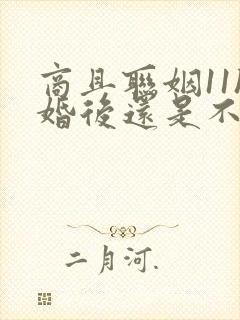 商且聯姻11l
婚後還是不
二月河.